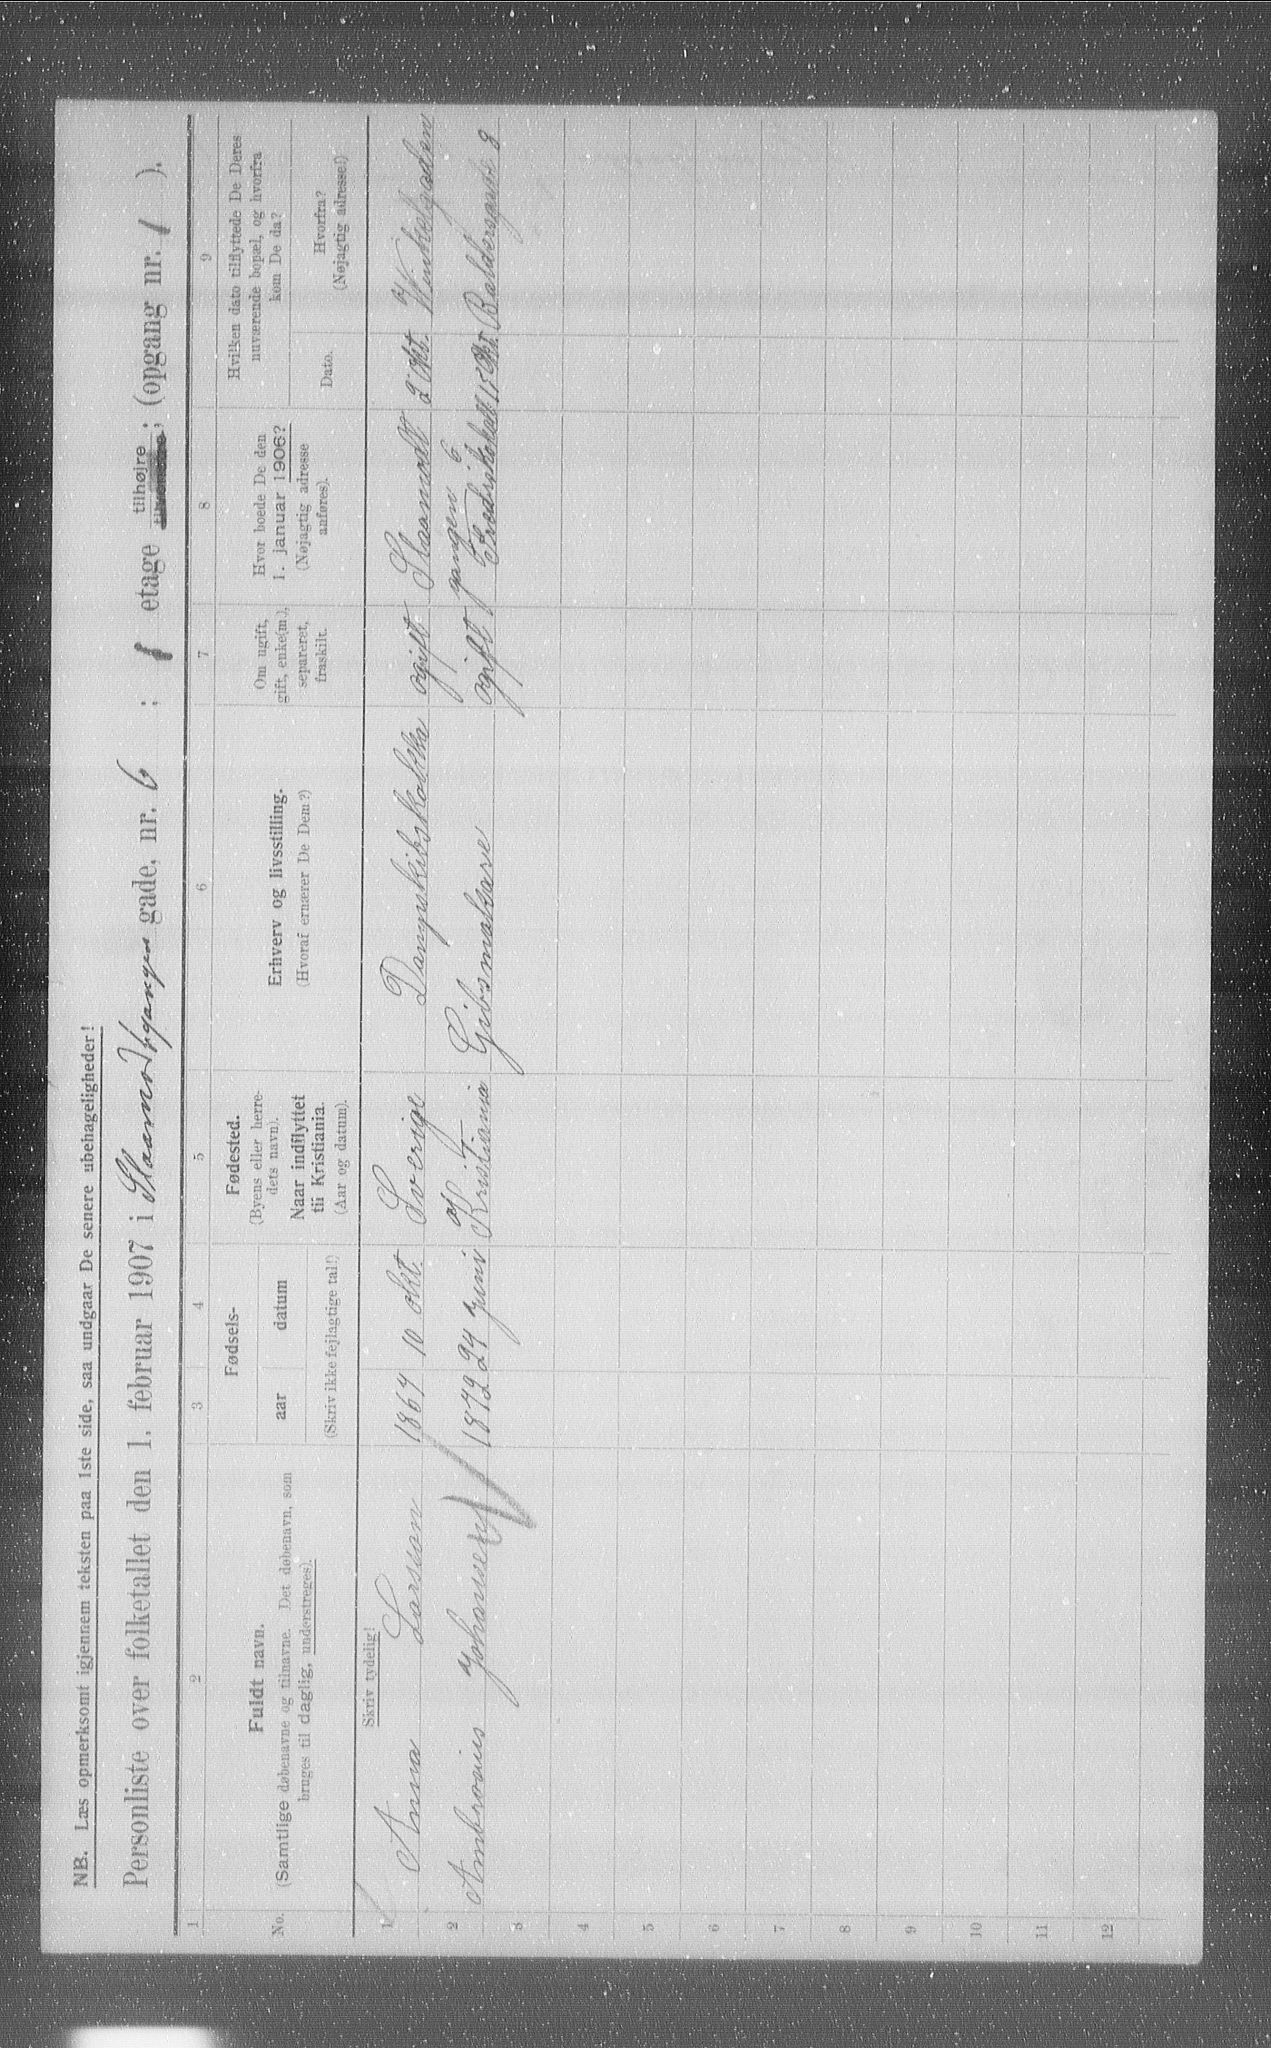 NB. Læs opmerksomt igjennem teksten paa 1ste side, saa undgaar De senere ubehageligheder!
Personliste over folketallet den 1. februar 1907 i Slaamodtgangen gade, nr. 6 ; 1 etage tilhøjre ; (opgang nr. 1 ).
1 2 3 4 5 6 7 8 9
No.
Fuldt navn.
(Samtlige døbenavne og tilnavne. Det døbenavn, som
bruges til daglig, understreges).
Fødsels-
aar datum
(Skriv ikke fejlagtige tal!)
Fødested.
(Byens eller herre-
dets navn).
Naar indflyttet
til Kristiania.
(Aar og datum).
Erhverv og livsstilling.
(Hvoraf ernærer De Dem?)
Om ugift,
gift, enke(m.),
separeret,
fraskilt.
Hvor boede De den
1. januar 1906?
(Nøjagtig adresse
anføres).
Hvilken dato tilflyttede De Deres
nuværende bopæl, og hvorfra
kom De da?
Dato.
Hvorfra?
(Nøjagtig adresse!)
Skriv tydelig!
1 Anna Larsson 1867 10 okt. Sverige ogift Slaamodt 2 Okt.
gangen 6
2 Ambrosius Johansen 1872 24 juni Kristiania Gibsmakare ogift Baldersgade 8
3
4
5
6
7
8
9
10
11
12